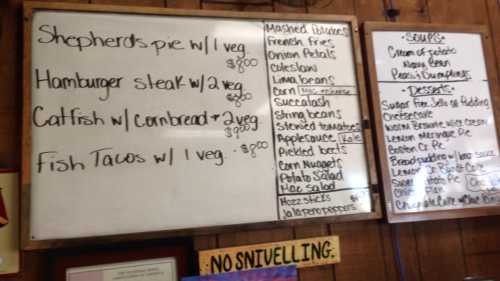 Shepherds pie w/ 1 veg.
$8.00
Hamburger steak w/2 veg
$8.00
Catfish w/ Cornbread + 2 veg.
$9.00
Fish Tacos w/ 1 veg. $8.00
Mashed Potatoes
French Fries
Onion Petals
Coleslaw
Lima beans
Corn Mac
Succatash
String beans
Stewed tomatoes
Applesauce Kale
Pickled beets
Corn Nuggets
Potato Salad
Mac Salad
Mozz sticks
Jalapeno peppers
Soups
Cream of potato
Navy Bean
Desserts
Sugar Free Jello or Pudding
Cheesecake
Warm Brownie w/Ice Cream
Lemon Meringue Pie
Boston Cr. Pie
Bread pudding w/ Sauce
NO SNIVELLING.